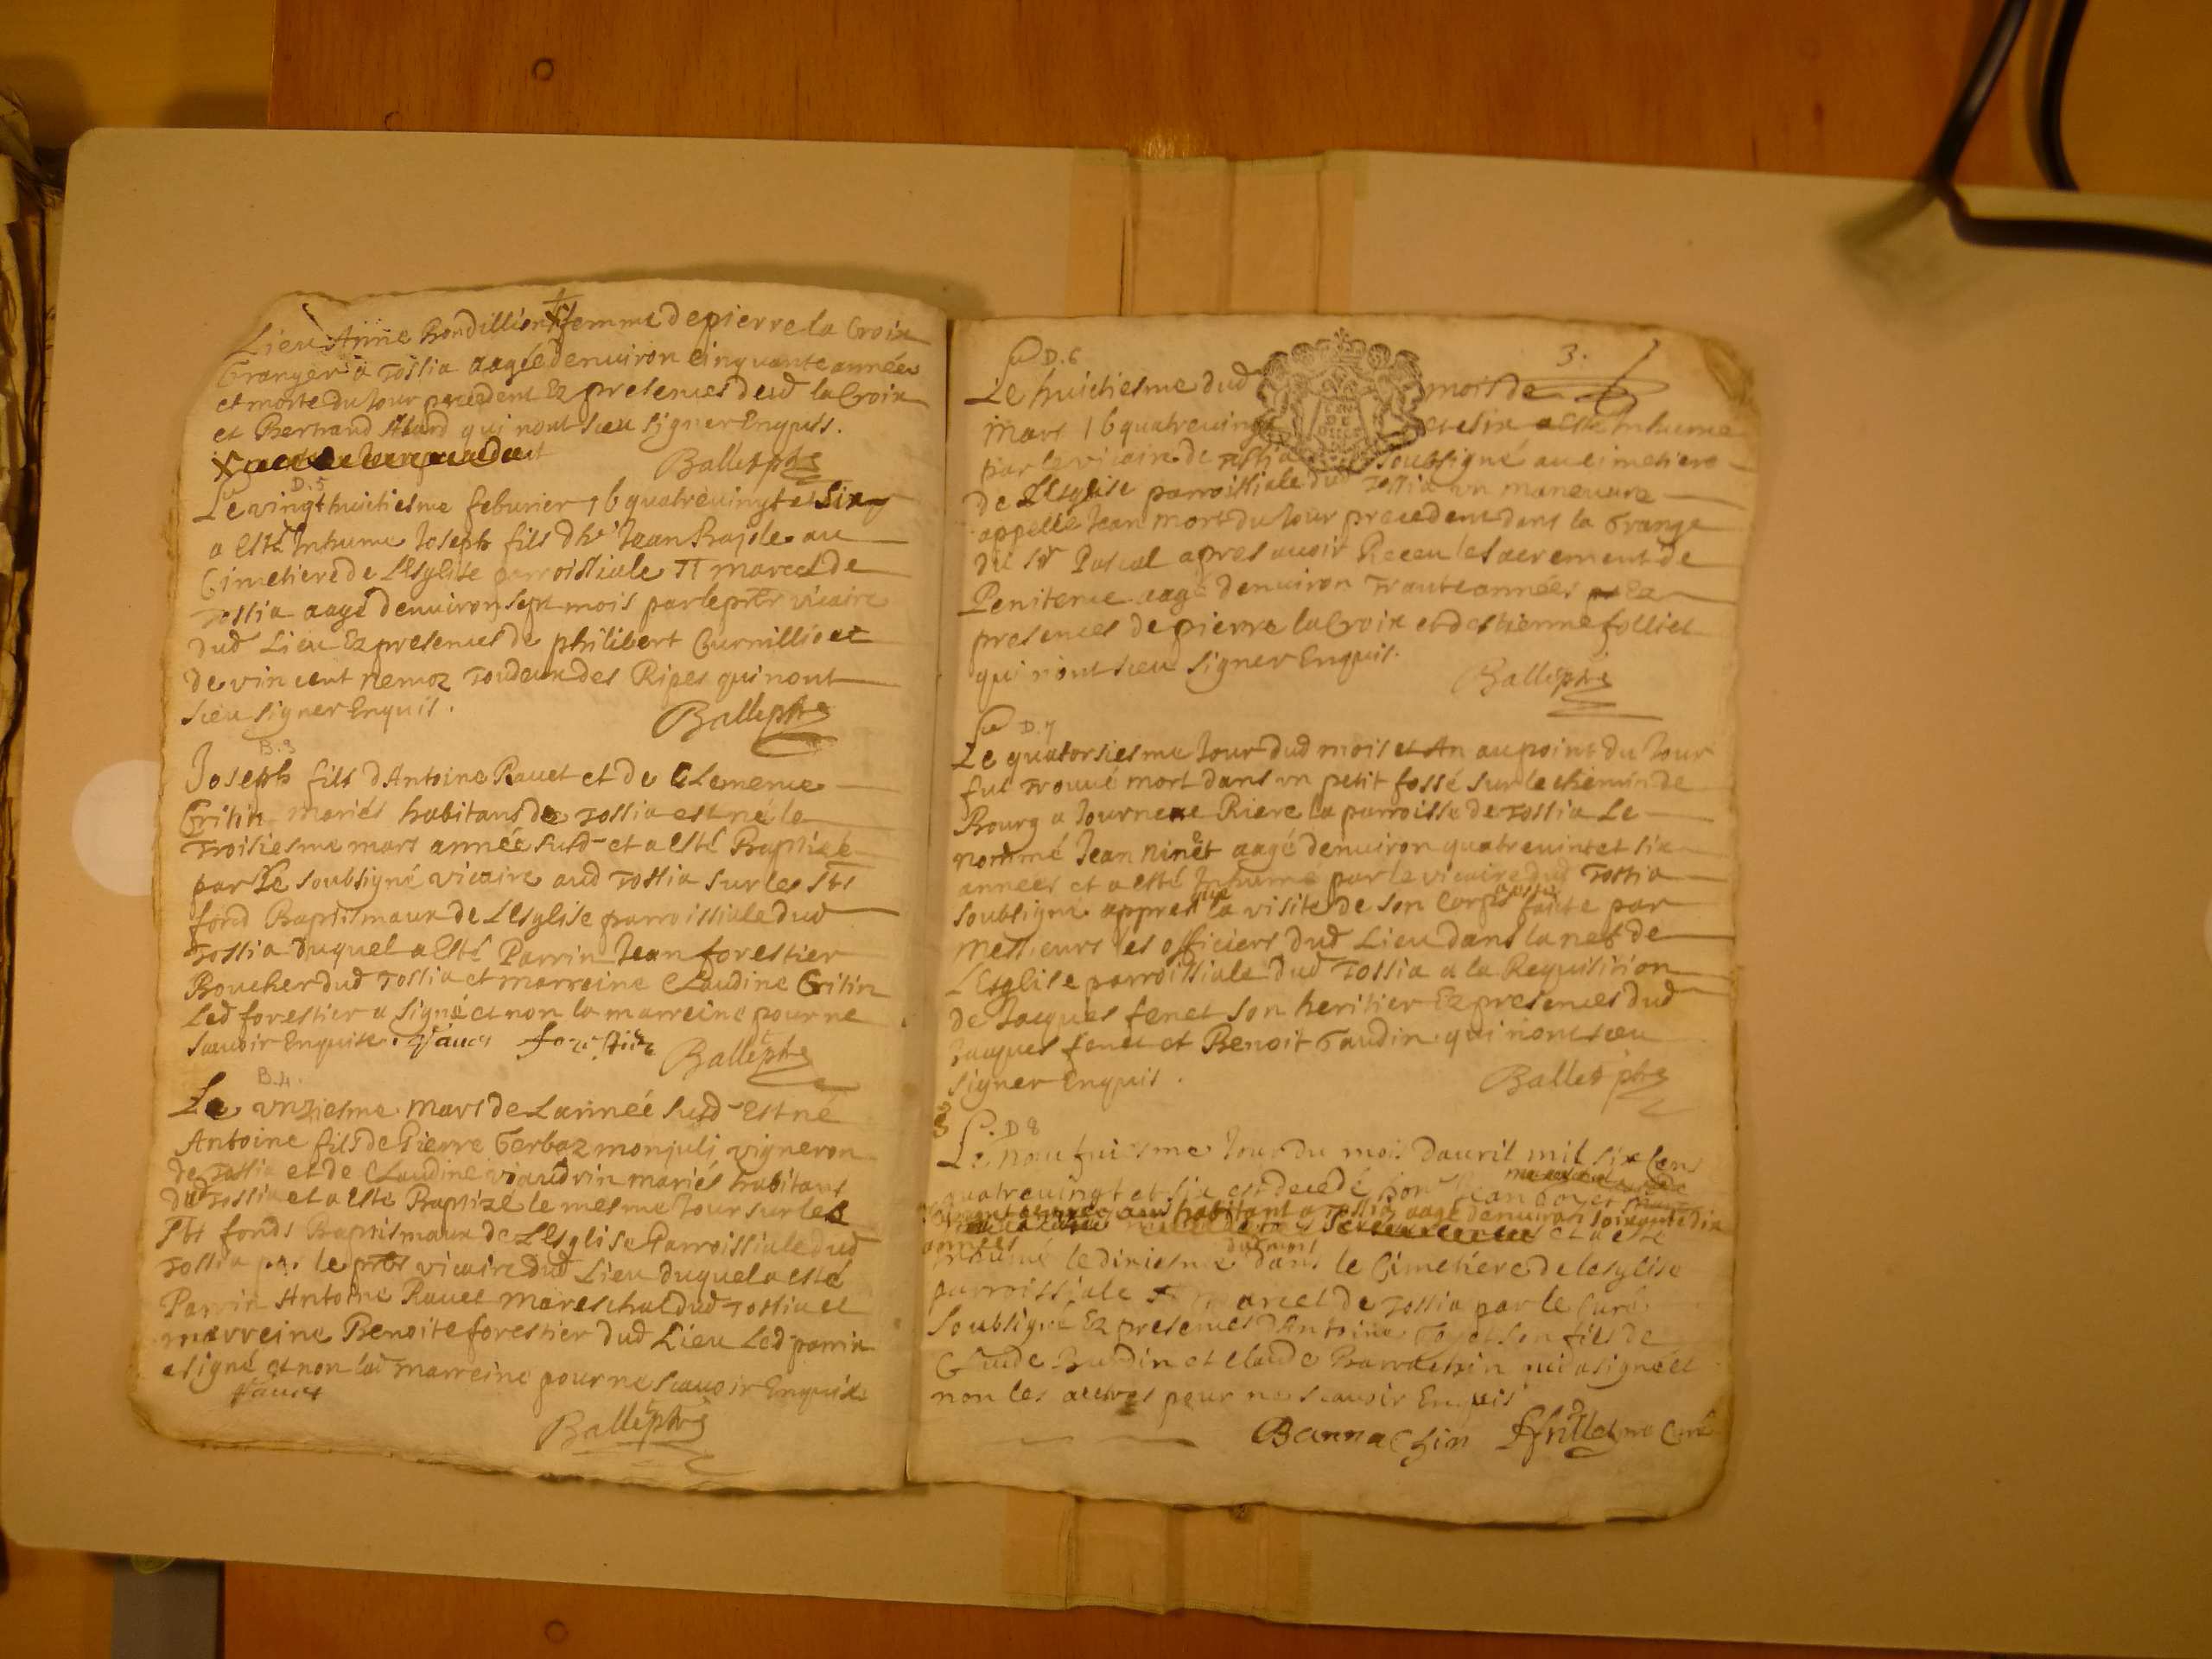 Lieu Anne Bondillion femme de pierre la Croix
Granger a Tossia aagée denuiron cinquante années
et morte du Jour precedent Ez presences dud la Croix
et Bertrand Abard qui nont sceu signer Enquis.
Ballet ptre
D.5
Le vingthuictiesme feburier 16 quatreuingt et six
a esté Inhumé Joseph fils dhe Jean Bajole au
Cimetiere de LEsglise parroissiale St marcel de
Tossia aagé denuiron sept mois par le ptre vicaire
dud Lieu Ez presences de philibert Curnillion et
de vincent nemoz Toudeux des Ripes qui nont
sceu signer Enquis.
Ballet ptre
B.3
Joseph fils dAntoine Rauet et de Clemence
Gritin mariés habitans de Tossia est né le
Troisiesme mars année susd et a esté Baptizé
par Le soubsigné vicaire aud Tossia sur les Sts
fond Baptismaux de LEsglise parroissiale dud
Tossia duquel a Esté Parrin Jean forestier
Boucher dud Tossia et marreine Claudine Gritin
Led forestier a signé et non la marreine pour ne
scauoir Enquise.
forestier
Ballet ptre
B.4.
Le vnziesme mars de Lannée susd Est né
Antoine fils de Pierre Gerbaz monjuli vigneron
de Tossia et de Claudine viaudrin mariés habitans
dud Tossia et a esté Baptizé le mesme Jour sur les
Sts fonds Baptismaux de LEsglise Parroissiale dud
Tossia par le ptre vicaire dud Lieu duquel a esté
Parrin Antoine Rauet mareschal dud Tossia et
marreine Benoite forestier dud Lieu Led parrin
a signé et non lad marreine pour ne scauoir Enquise
Ballet ptre
D.6
3.
Le huictiesme dud mois de
Mars 16 quatreuingt et six a esté Inhumé
par le vicaire de Tossia soubsigné au cimetiere
de LEsglise parroissiale dud Tossia vn maneuure
appellé Jean mort du Jour precedent dans la Grange
du Sr Pascal apres auoir Receu le sacrement de
Penitence aagé denuiron Trante années Ez
presences de pierre la Croix et destienne folliet
qui nont sceu signer Enquis.
Ballet ptre
D.7
Le quatorsiesme Jour dud mois et An au point du Jour
fut Trouué mort dans vn petit fossé sur le chemin de
Bourg a Journene Riere la parroisse de Tossia Le
nommé Jean ninet aagé denuiron quatreuint et six
années et a esté Inhumé par le vicaire dud Tossia
soubsigné appres que la visite de son Corps faicte par
Messieurs les officiers dud Lieu dans la nef de
LEsglise parroissiale dud Tossia a la Requisition
de Jacques fenet son heritier Ez presences dud
Jacques fenet et Benoit Gaudin qui nont sceu
signer Enquis.
Ballet ptre
D 8
Le neufuiesme Jour du mois dauril mil six Cens
quatreuingt et six est decedé Jean
habitant a Tossia aagé denuiron soixante dix
années et a esté
Inhumé le dixiesme dud mois dans le Cimetiére de lesglise
parroissiale St marcel de Tossia par le Curé
soubsigné Ez presences dAntoine son fils de
Claude et Claude Bannachin qui a signé et
non les autres pour ne scauoir Enquis
Bannachin
Curé